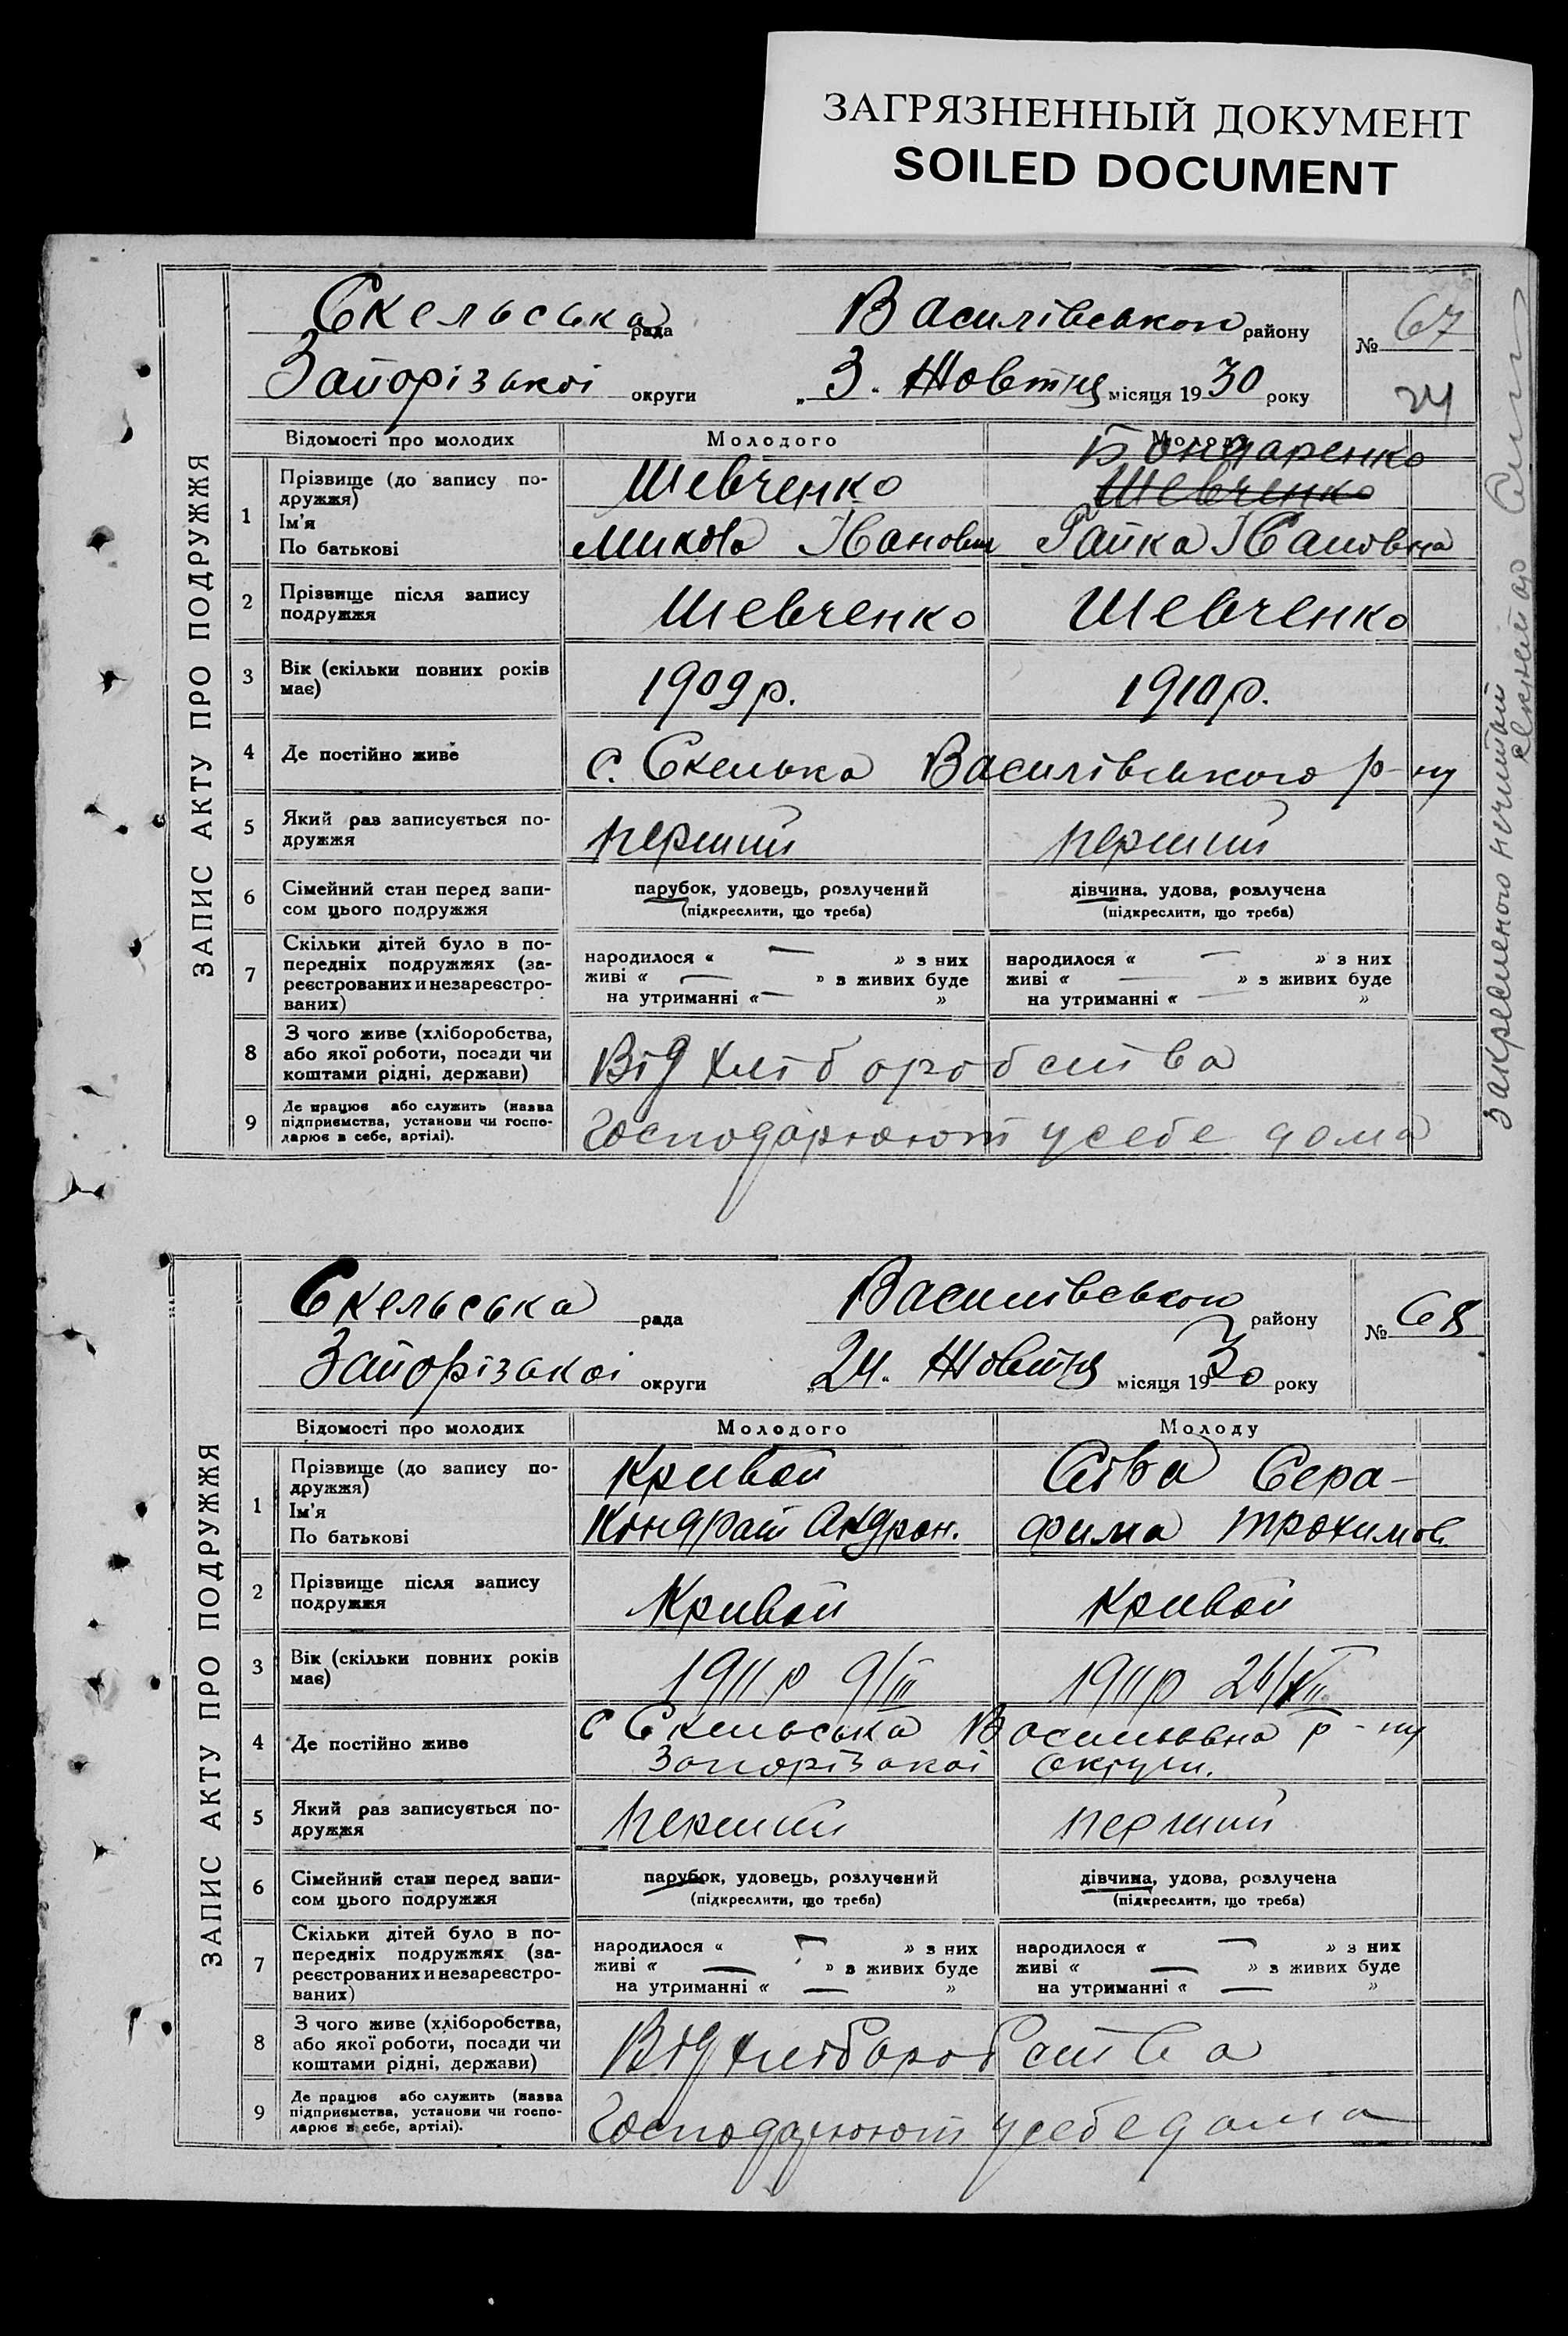 ЗАГРЯЗНЕННЫЙ ДОКУМЕНТ
SOILED DOCUMENT
ЗАПИС АКТУ ПРО ПОДРУЖЖЯ
Скельська рада Василівського району № 67
Запорізькоі округи „3" Жовтня місяця 1930 року 24
Відомості про молодих Молодого Молоду
Бондаренко
1 Прізвище (до запису по- Шевченко Шевченко
дружжя)
Ім'я
По батькові Микола Іванович Гапка Івановна
2 Прізвище після запису Шевченко Шевченко
подружжя
3 Вік (скільки повних років 1909 р. 1910 р.
має)
4 Де постійно живе с. Скелька Василівського р-ну
5 Який раз записується по- перший перший
дружжя
6 Сімейний стан перед запи- парубок, удовець, розлучений дівчина, удова, розлучена
сом цього подружжя (підкреслити, що треба) (підкреслити, що треба)
7 Скільки дітей було в по- народилося « — » з них народилося « — » з них
передніх подружжях (за- живі « — » з живих буде живі « — » з живих буде
реєстрованих и незареєстро- на утриманні « — » на утриманні « — »
ваних)
8 З чого живе (хліборобства,
або якої роботи, посади чи Від хліборобства
коштами рідні, держави)
9 Де працює або служить (назва
підприємства, установи чи госпо- Господарюют усебе дома
дарює в себе, артілі).
Закресленого нечитат
ЗАПИС АКТУ ПРО ПОДРУЖЖЯ
Скельська рада Василівського району № 68
Запорізькоі округи „24" Жовтня місяця 1930 року
Відомості про молодих Молодого Молоду
1 Прізвище (до запису по- Кривой Сева Сера-
дружжя)
Ім'я Кондрат Андрон. фима Трохимов.
По батькові
2 Прізвище після запису Кривой Кривой
подружжя
3 Вік (скільки повних років 1911 р 9/III 1911 р 26/XII
має)
4 Де постійно живе с Скельська р-ну
Запорізькоі округи.
5 Який раз записується по- перший перший
дружжя
6 Сімейний стан перед запи- парубок, удовець, розлучений дівчина, удова, розлучена
сом цього подружжя (підкреслити, що треба) (підкреслити, що треба)
7 Скільки дітей було в по- народилося « — » з них народилося « — » з них
передніх подружжях (за- живі « — » з живих буде живі « — » з живих буде
реєстрованих и незареєстро- на утриманні « — » на утриманні « — »
ваних)
8 З чого живе (хліборобства,
або якої роботи, посади чи Від хліборобства
коштами рідні, держави)
9 Де працює або служить (назва
підприємства, установи чи госпо- Господарюют усебе дома
дарює в себе, артілі).